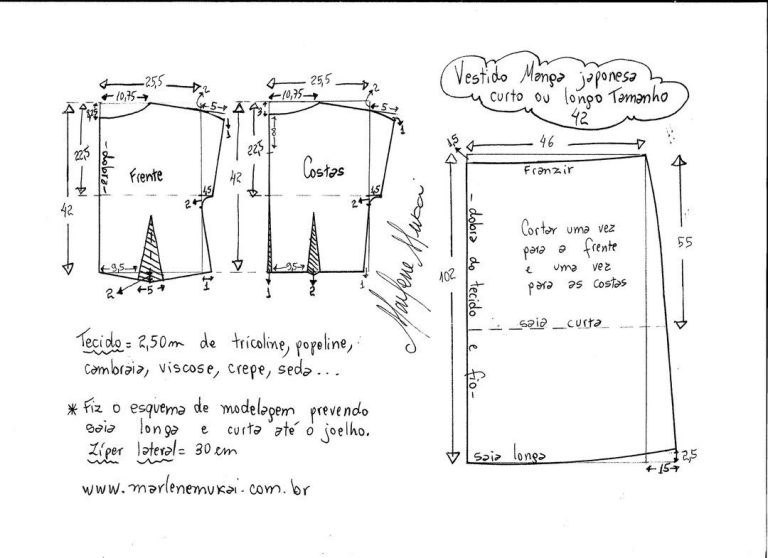 Vestido Manga japonesa
curto ou longo Tamanho
42
25,5
10,75
2
5
1
22,5
42
- dobra -
Frente
4,5
2
9,5
5
2
1
25,5
10,75
2
5
3
8
1
22,5
42
Costas
4,5
2
9,5
1
2
1
Marlene Mukai
1,5
46
Franzir
- dobra do tecido e fio -
Cortar uma vez
para a frente
e uma vez
para as costas
55
102
saia curta
saia longa
15
2,5
Tecido = 2,50m de tricoline, popeline,
cambraia, viscose, crepe, seda...
* Fiz o esquema de modelagem prevendo
saia longa e curta até o joelho.
Zíper lateral = 30 cm
www.marlenemukai.com.br